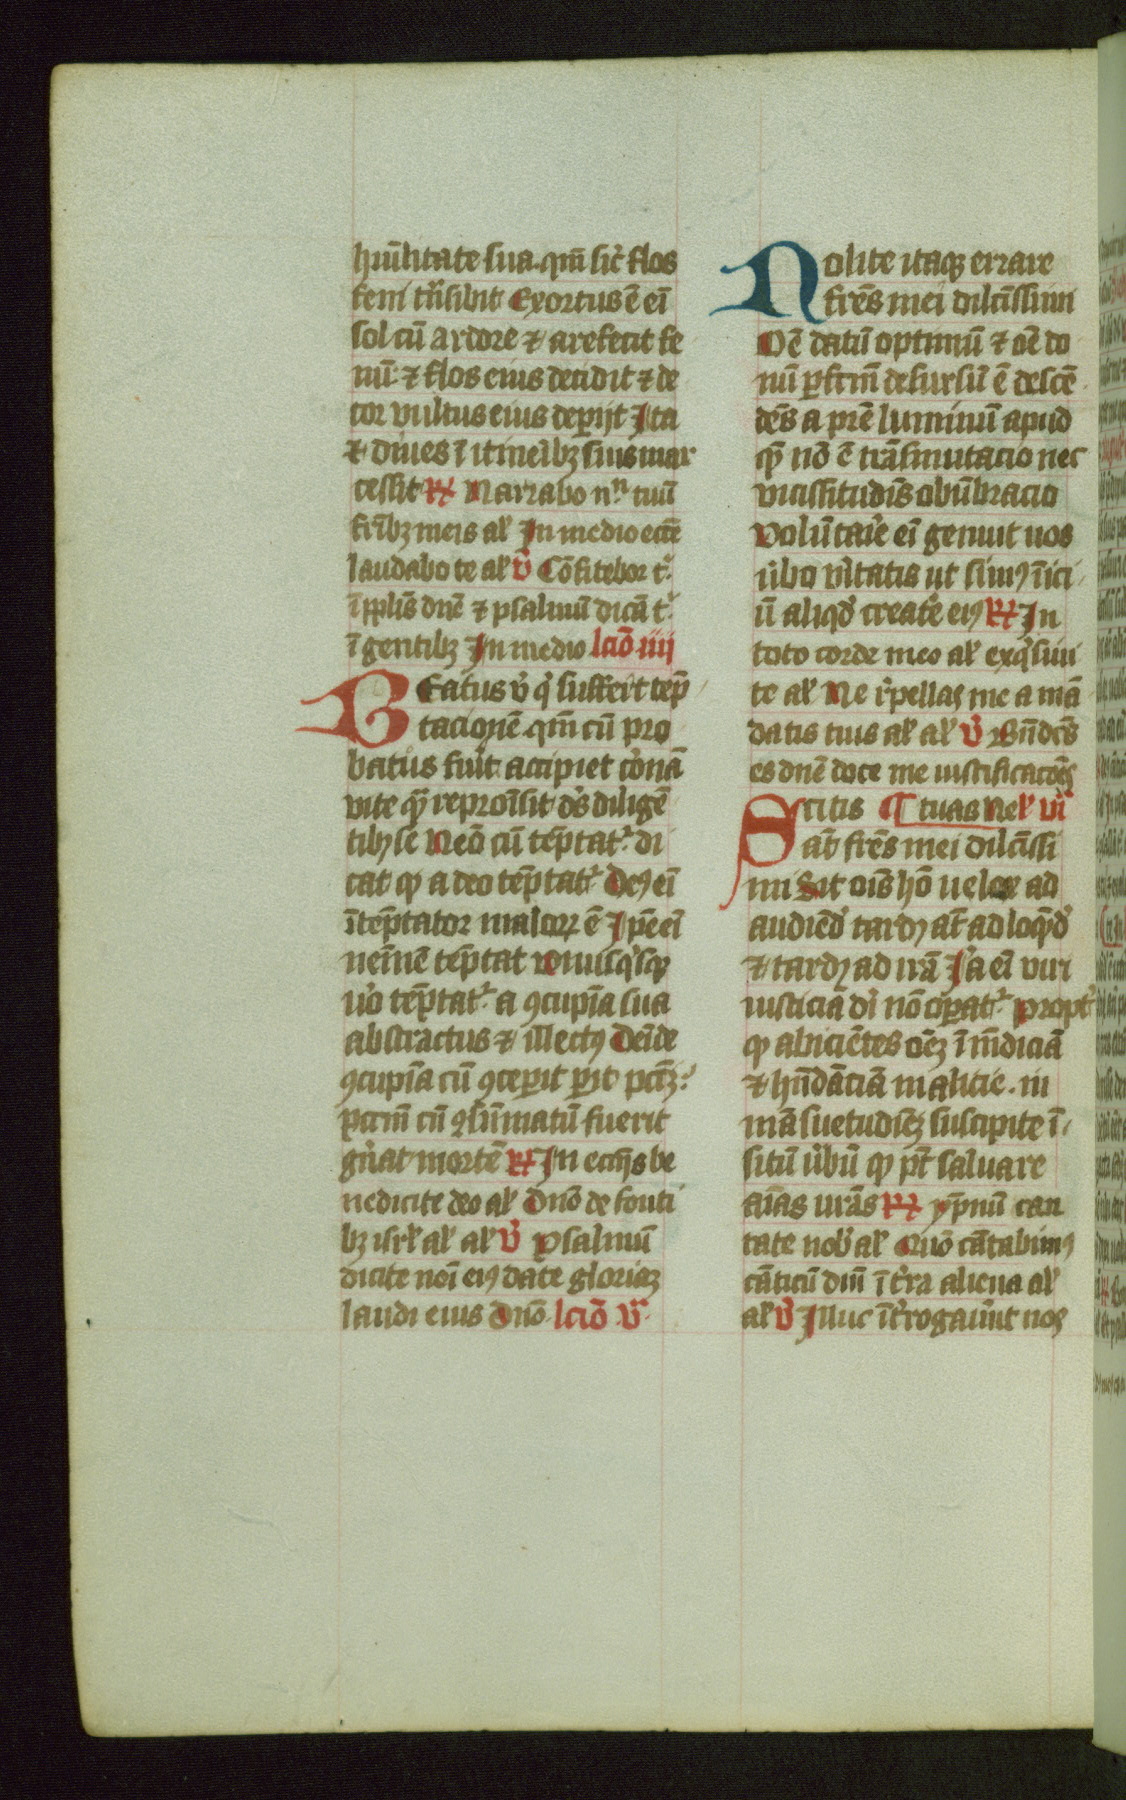 hūilitate sua. qm̄ sic̄ flos
feni trāsibit Exortus ē eī
sol cū ardore ⁊ arefecit fe
nū ⁊ flos eius decidit ⁊ de
cor vultus eius deperijt Ita
⁊ diues ī itineribꝫ suis mar
cessit R Narrabo nn tuū
fribꝫ meis al̄ In medio eccē
laudabo te al̄ v̄ Cōfitebor t
ī pplis dnē ⁊ psalmū dicā t
ī gentibꝫ In medio lciō iiij
BEatus v̄ q̄ suffert tēp
tacionē. qm̄ cū pro
batus fuīt accipiet coronā
vite qꝫ repromisit ds̄ diligē
tibꝫ se Nēo cū tēptat᷑ di
cat qꝫ a deo tēptat᷑ Deꝰ eī
ītēptator maloꝝ ē Ipē eī
neīnē tēptat Vnusqͥsqꝫ
v̊o tēptat᷑ a ꝯcupīa sua
abstractus ⁊ illectꝰ Deīde
ꝯcupīa cū ꝯceperit parit pccm̄
pccm̄ cū ꝯsūmatū fuerit
gn̄at mortē R In ecclijs be
nedicite deo al̄ Dnō de fonti
bꝫ isrl̄ al̄ al̄ v̄ Psalmū
dicite noī eiꝰ date gloriaꝫ
laudi eius Dnō lciō v̄
Nolite itaqꝫ errare
frēs mei dilcīssimi
Oē datū optimū ⁊ oē do
nū pfcm̄ desursū ē descē
dēs a prē luminū apud
qꝫ nō ē trāsmutacio nec
vicissitudīs obūbracio
Volūtarie eī genuit nos
ūbo v̄itatis ut simꝰ īici
ū aliqd̄ creatē eiꝰ R In
toto corde meo al̄ exqͥsiui
te al̄ Ne r̄pellas me a mā
datis tuis al̄ al̄ v̄ Bn̄dcs̄
es dnē doce me iustificacōes
Scitis ¶ tuas Ne l̄ vi
āt frēs mei dilcīssi
mi Sit oīs hō uelox ad
audiēd̄ tardꝰ āt ad loqꝫd̄
⁊ tardꝰ ad irā Ira eī viri
iusticia dī nō opat᷑ Propt̄
qꝫ abiciētes oēꝫ īmūdiciā
⁊ hn̄dāciā malicie. in
māsuetudīeꝫ suscipite ī
sitū ūbū qꝫ pt̄ saluare
aīas vrās R ypnū can
tate nob̄ al̄ Quō cātabimꝰ
cāticū dnī ī tr̄a aliena al̄
al̄ v̄ Illuc īt̄rogauīt nos